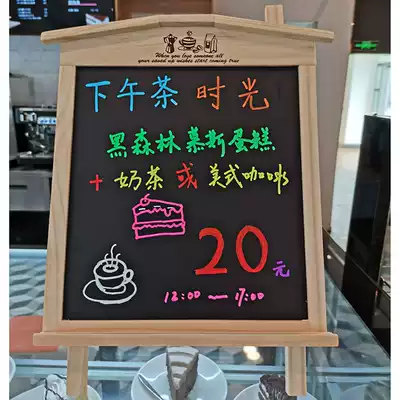 When you love someone all
your saved up wishes start coming true
下午茶 时光
黑森林慕斯蛋糕
+ 奶茶 或 美式咖啡
20元
12:00 — 17:00